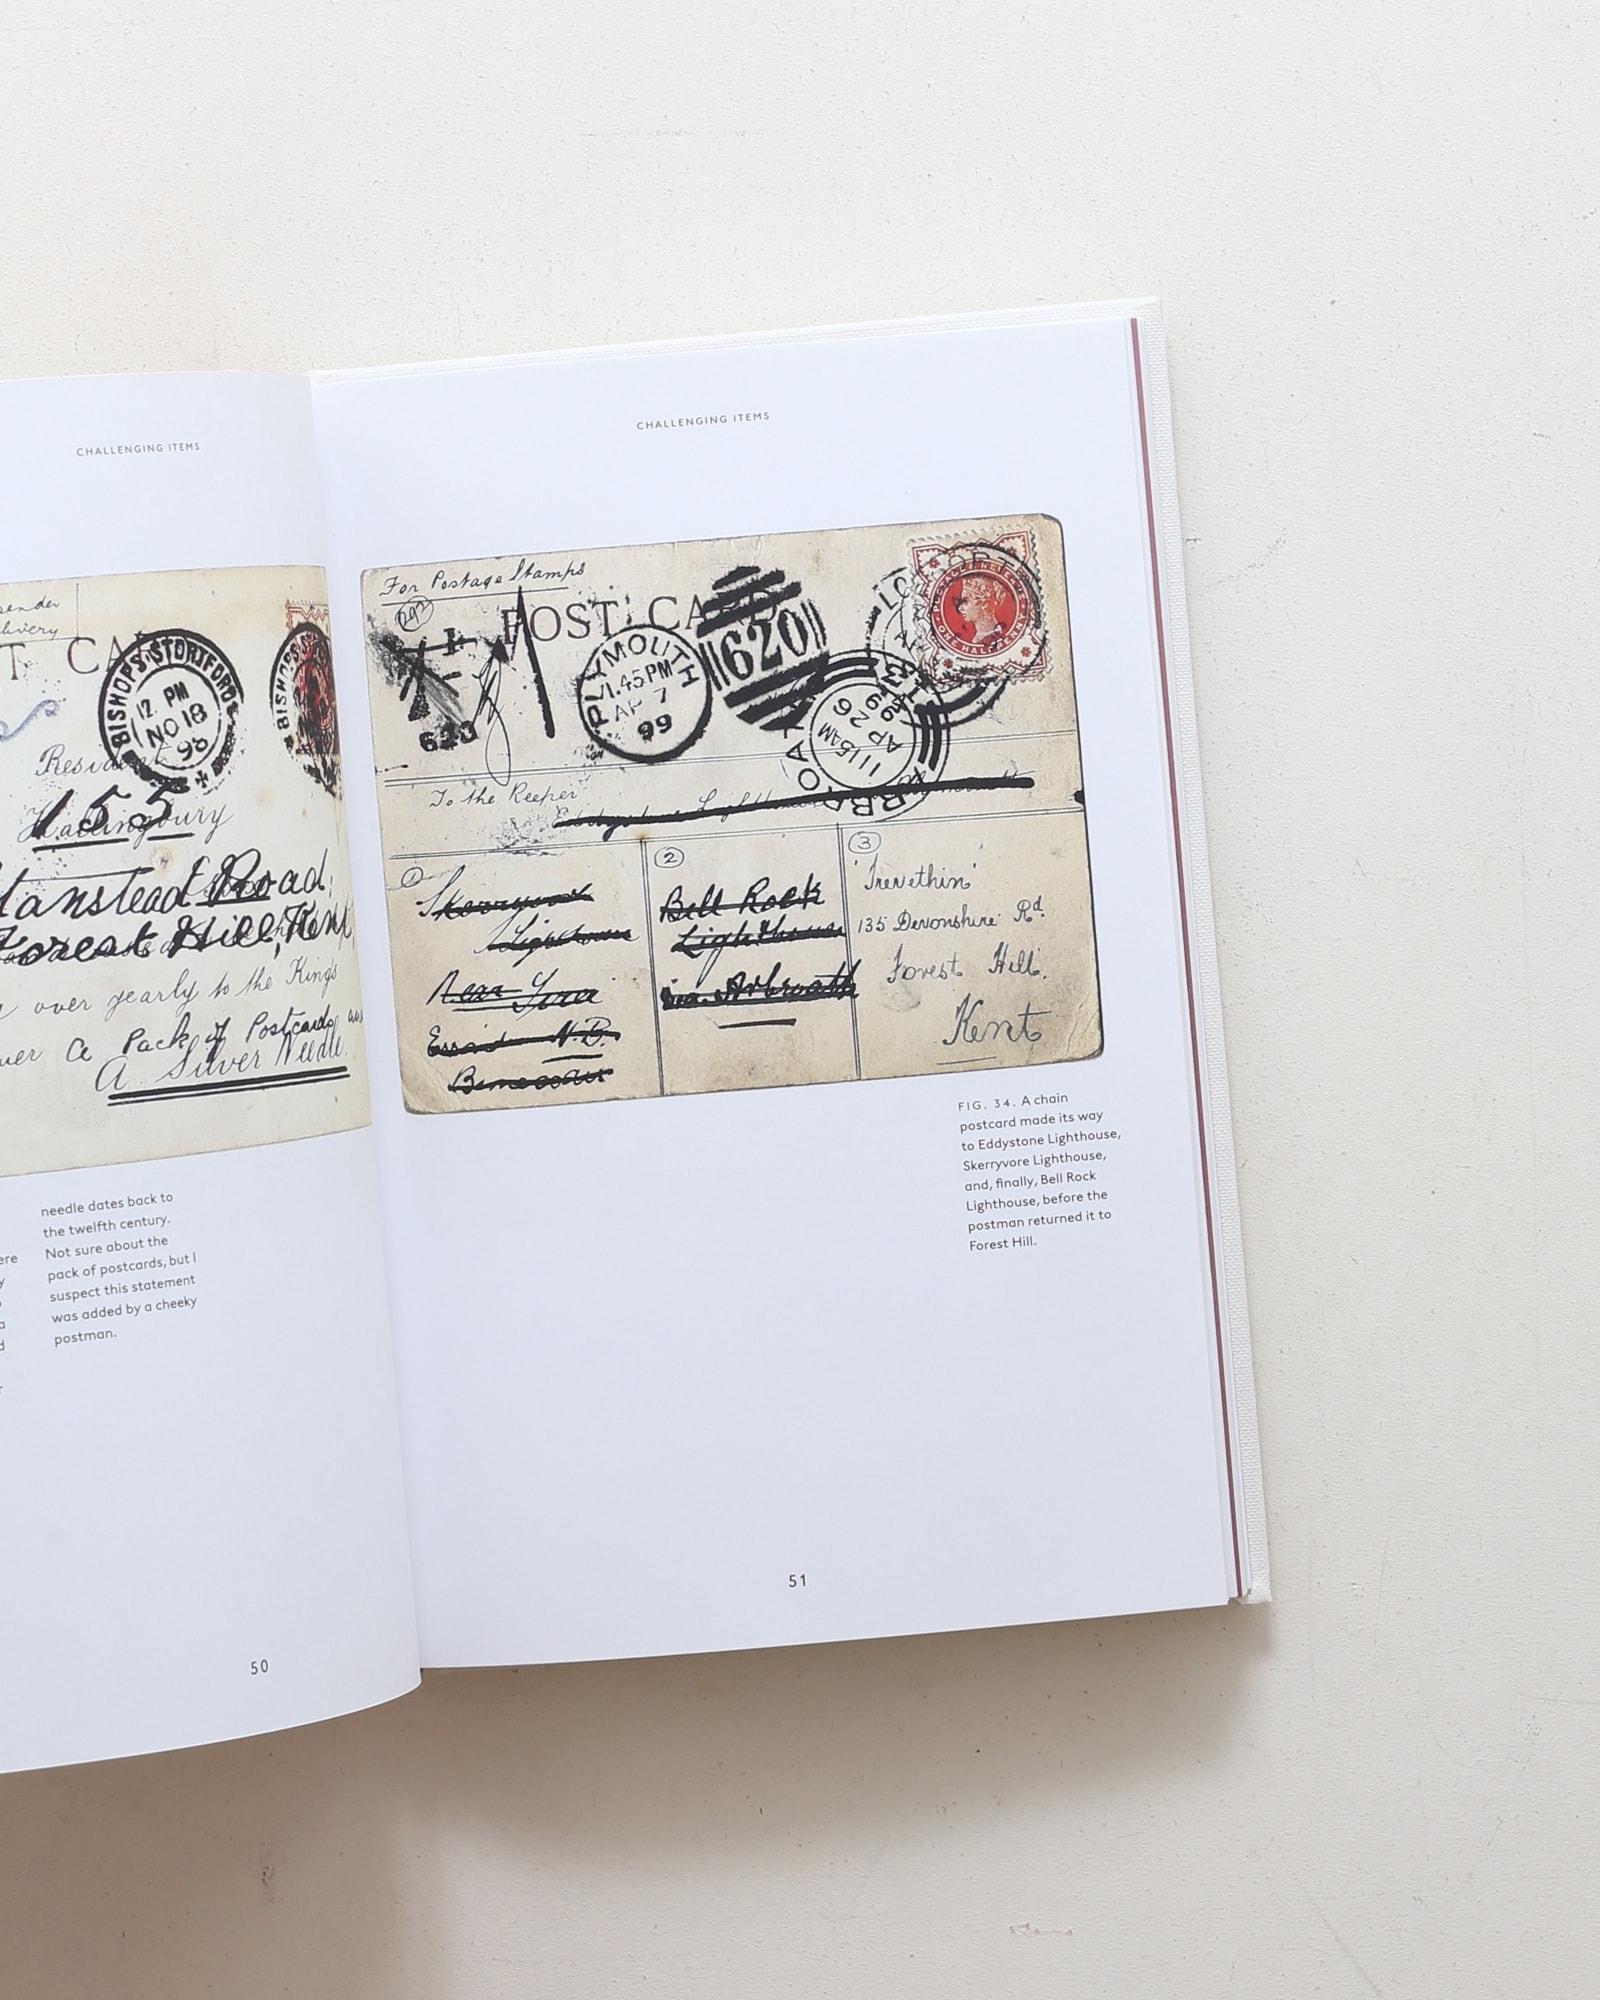 CHALLENGING ITEMS
T CA
BISHOPS STORTFORD
12 PM
NO 18
98
BISHOPS
Resident
155
Hallingbury
Stanstead Road,
Forest Hill, Kent
over yearly to the King's
a Pack of Postcards and
A Silver Needle
needle dates back to
the twelfth century.
Not sure about the
pack of postcards, but I
suspect this statement
was added by a cheeky
postman.
50
CHALLENGING ITEMS
For Postage Stamps
292
POST CARD
620
PLYMOUTH
1.45 PM
AP 7
99
620
11 15 AM
AP 26
ONE HALFPENNY
To the Keeper
Eddystone Lighthouse
1
Skerryvore
Lighthouse
N.B.
2
Bell Rock
Lighthouse
via Arbroath
3
'Trevethin'
135 Devonshire Rd.
Forest Hill.
Kent
FIG. 34. A chain
postcard made its way
to Eddystone Lighthouse,
Skerryvore Lighthouse,
and, finally, Bell Rock
Lighthouse, before the
postman returned it to
Forest Hill.
51